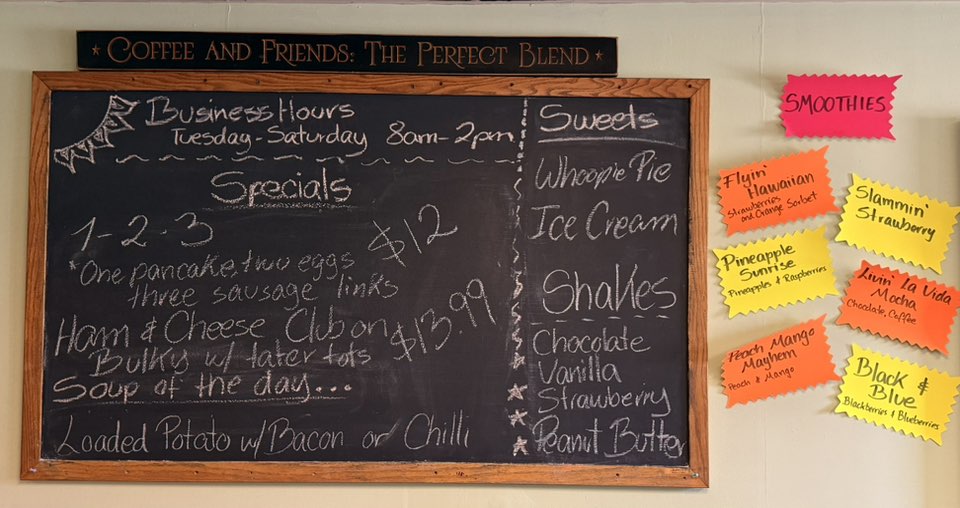 * COFFEE AND FRIENDS: THE PERFECT BLEND *
Business Hours
Tuesday-Saturday 8am-2pm
Specials
1-2-3 $12
*One pancake, two eggs
three sausage links
Ham & Cheese Club on $13.99
Bulky w/ tater tots
Soup of the day...
Loaded Potato w/Bacon or Chilli
Sweets
Whoopie Pie
Ice Cream
Shakes
Chocolate
Vanilla
Strawberry
Peanut Butter
SMOOTHIES
Flyin'
Hawaiian
Strawberries
and Orange Sorbet
Slammin'
Strawberry
Pineapple
Sunrise
Pineapples & Raspberries
Livin' La Vida
Mocha
Chocolate, Coffee
Peach Mango
Mayhem
Peach & Mango
Black &
Blue
Blackberries & Blueberries